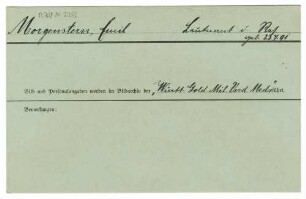 Morgenstern, Emil Leutnant d. Res
geb. 23.7.91
Bild und Personalangaben wurden im Bildarchiv der „Württ. Gold. Mil. Verd. Medaille
Bemerkungen: